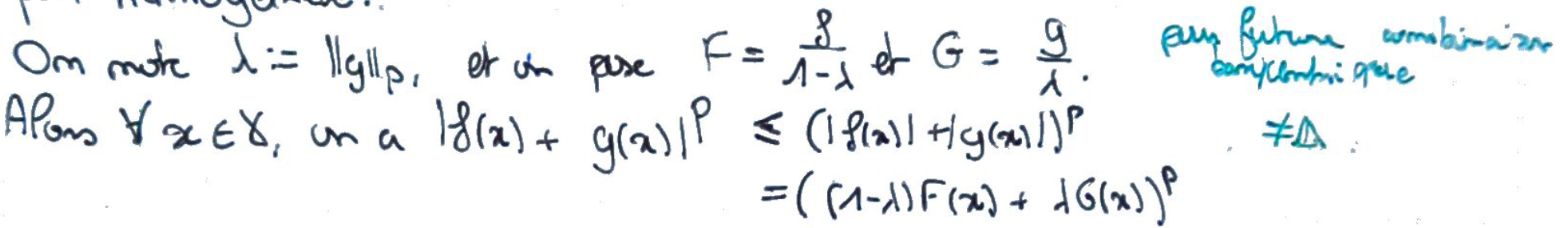 par homogénéité.
On note λ := ||g||p, et on pose F = f/(1-λ) et G = g/λ. pour future combinaison barycentrique
Alors ∀ x ∈ X, on a |f(x) + g(x)|^p ≤ (|f(x)| + |g(x)|)^p ≠Δ.
= ((1-λ)F(x) + λG(x))^p